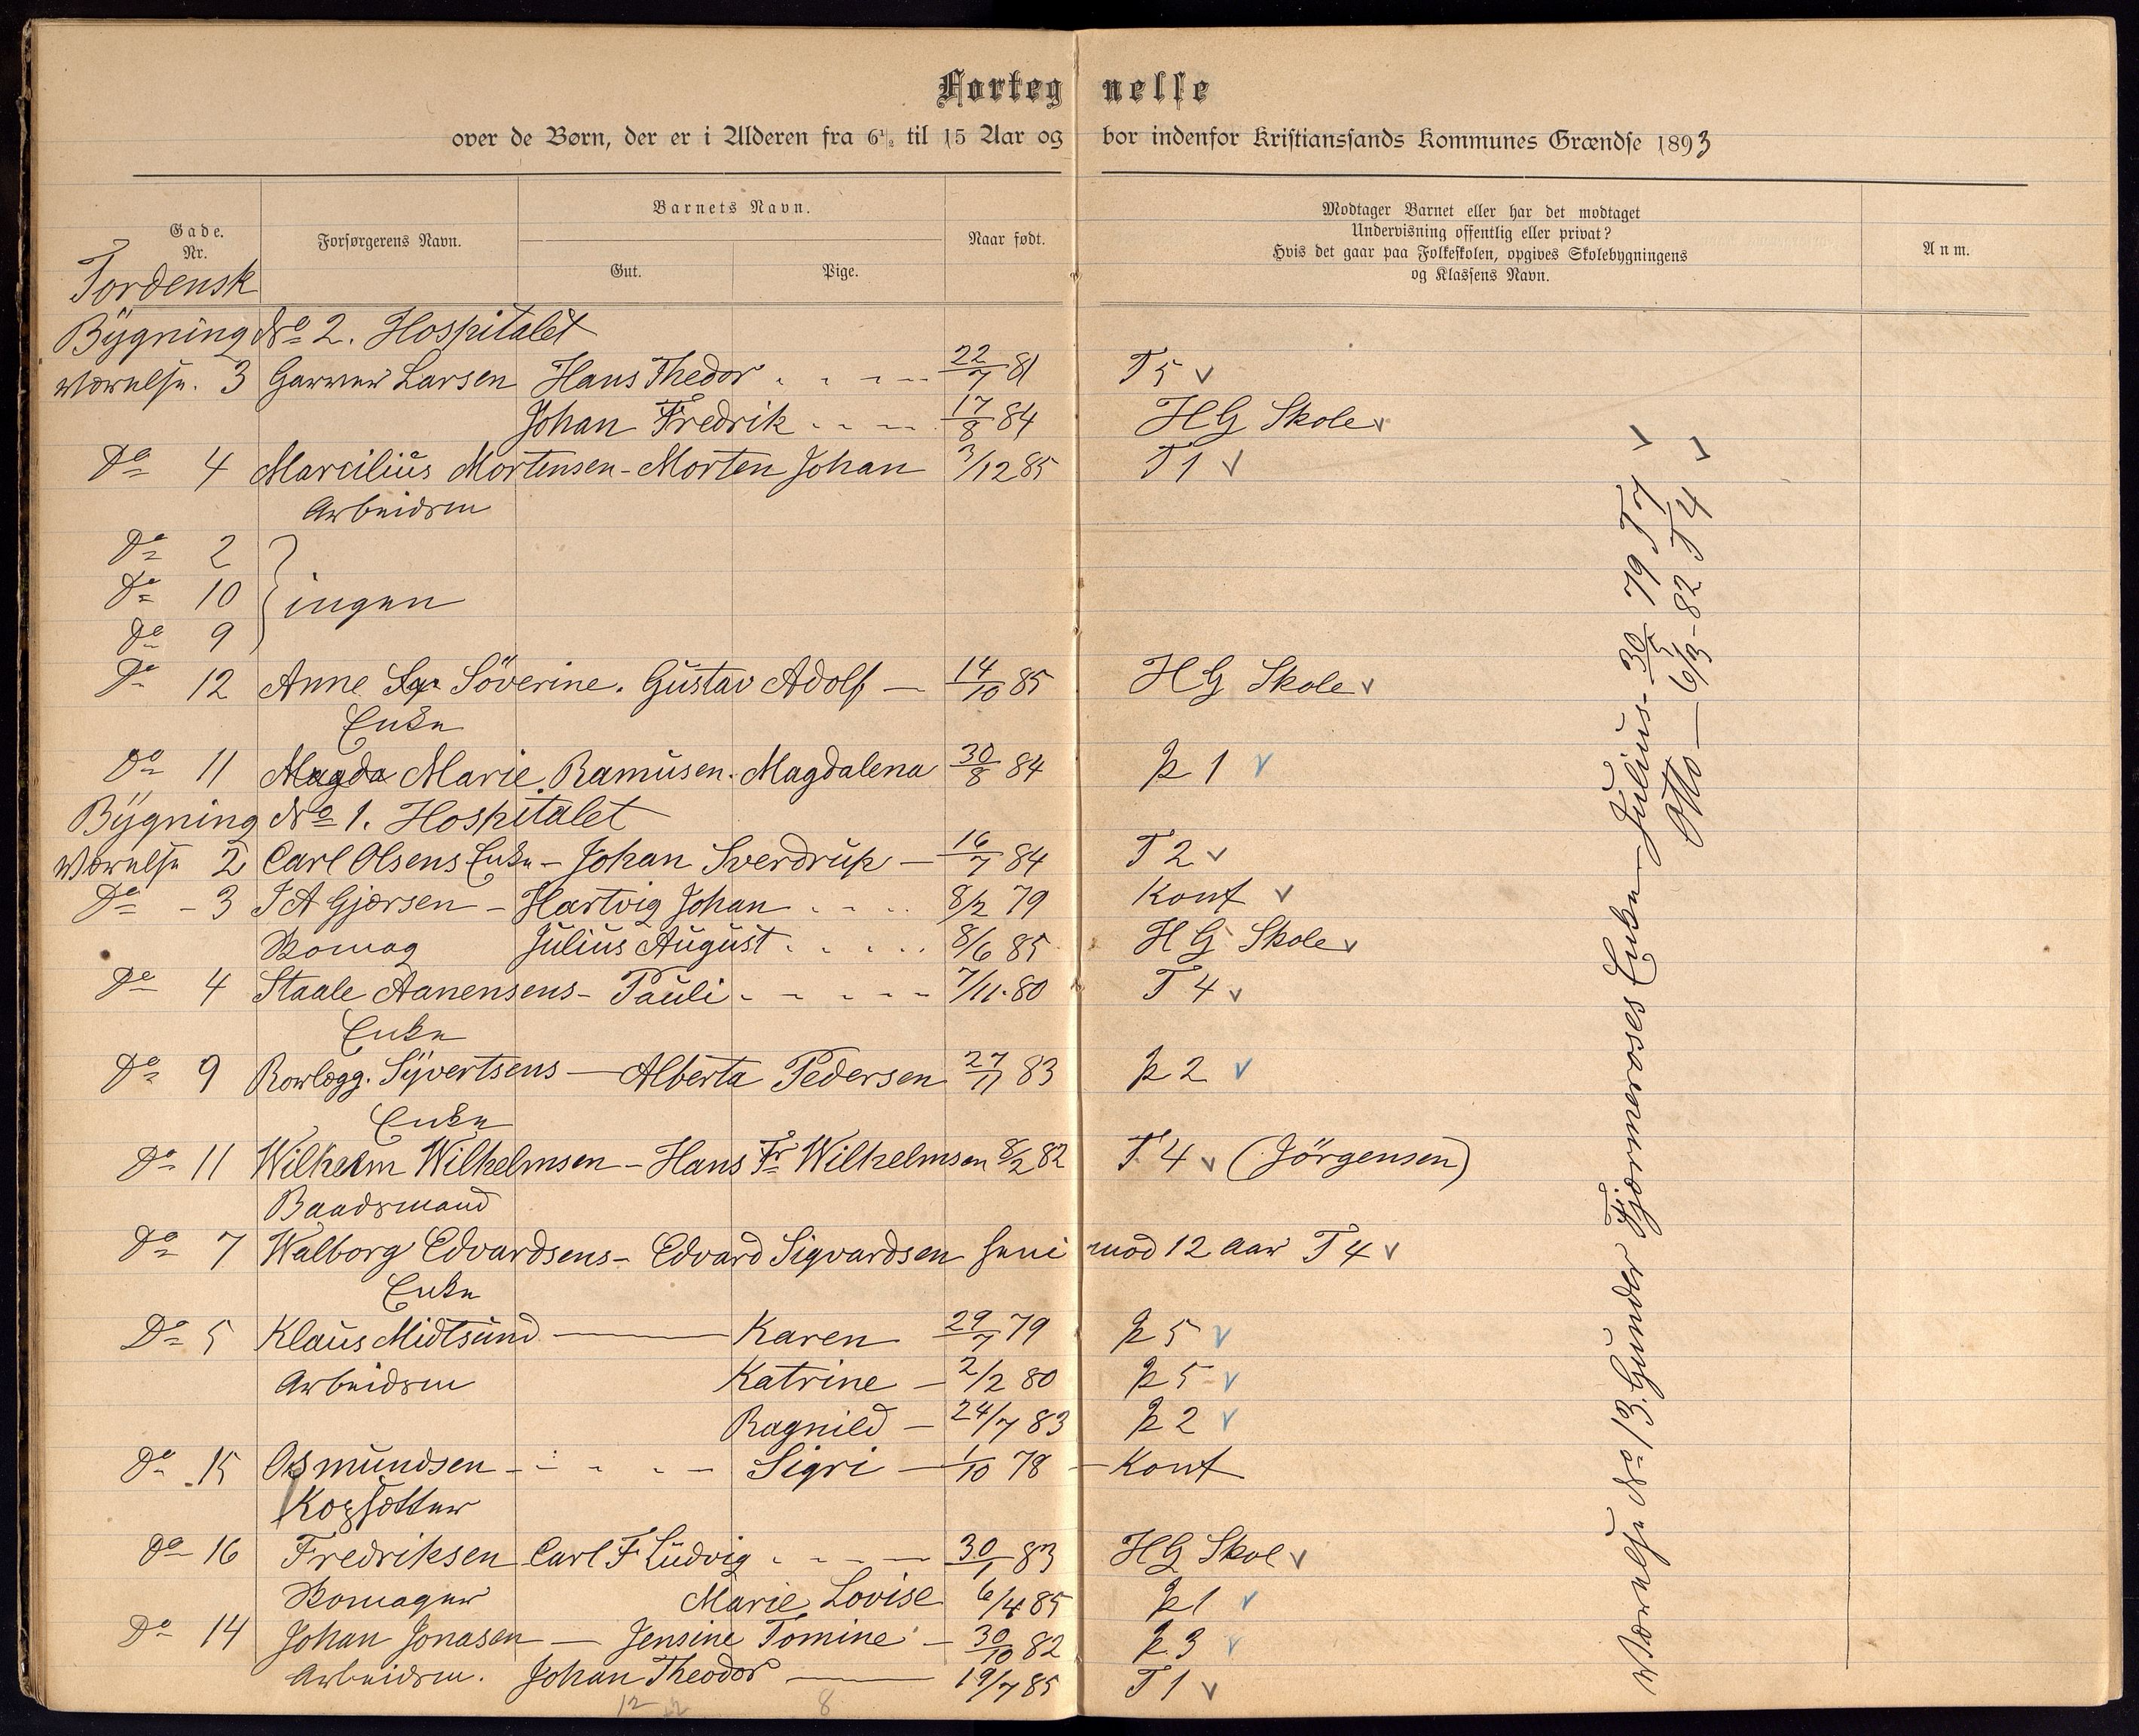 Forteg nelse
over de Børn, der er i Alderen fra 6½ til 15 Aar og bor indenfor Kristianssands Kommunes Grændse 1893
Gade. Nr.
Forsørgerens Navn.
Barnets Navn.
Gut.
Pige.
Naar født.
Modtager Barnet eller har det modtaget
Undervisning offentlig eller privat?
Hvis det gaar paa Folkeskolen, opgives Skolebygningens
og Klassens Navn.
Anm.
Tordensk
Bygning No 2. Hospitalet
Værelse. 3 Garver Larsen Hans Thedor 22/7 81 T 5 v
Johan Fredrik 17/8 84 HG Skole v
Do 4 Marcilius Mortensen - Morten Johan 3/12 85 T 1 v
Arbeidsm
Do 2
Do 10 } ingen
Do 9
Do 12 Anne Söverine. Gustav Adolf — 14/10 85 HG Skole v
Enke
Do 11 Magda Marie Ramusen. Magdalena 30/8 84 P 1 v
Bygning No 1. Hospitalet
Værelse 2 Carl Olsens Enke - Johan Sverdrup — 16/7 84 T 2 v
Do - 3 T A Gjersen - Hartvig Johan 8/2 79 Konf v
Skomag Julius August 8/6 85 HG Skole v
Do 4 Staale Aanensens - Pauli 7/11 80 T 4 v
Enke
Do 9 Rorlægg. Syvertsens — Alberta Pedersen 27/11 83 P 2 v
Enke
Do 11 Wilhelm Wilhelmsen - Hans Fr Wilhelmsen 8/2 82 T 4 v (Jörgensen)
Baadsmand
Do 7 Walborg Edvardsens - Edvard Sigvardsen henimod 12 aar T 4 v
Enke
Do 5 Klaus Midtsund — Karen 29/7 79 P 5 v
Arbeidsm Katrine — 2/2 80 P 5 v
Ragnild — 24/7 83 P 2 v
Do 15 Osmundsen - Sigri — 1/10 78 — Konf
Do 16 Fredriksen Carl F Ludvig 30/1 83 HG Skol v
Skomager Marie Lovise 6/4 85 P 1 v
Do 14 Johan Jonasen — Jensine Tomine — 30/10 82 P 3 v
Arbeidsm. Johan Theodor — 19/7 85 T 1 v
12 8
Værelse No 13. Gunder Fjærmeroses Enke — Julius - 30/5 79 T 7 v
Otto — 6/3 - 82 T 4 v